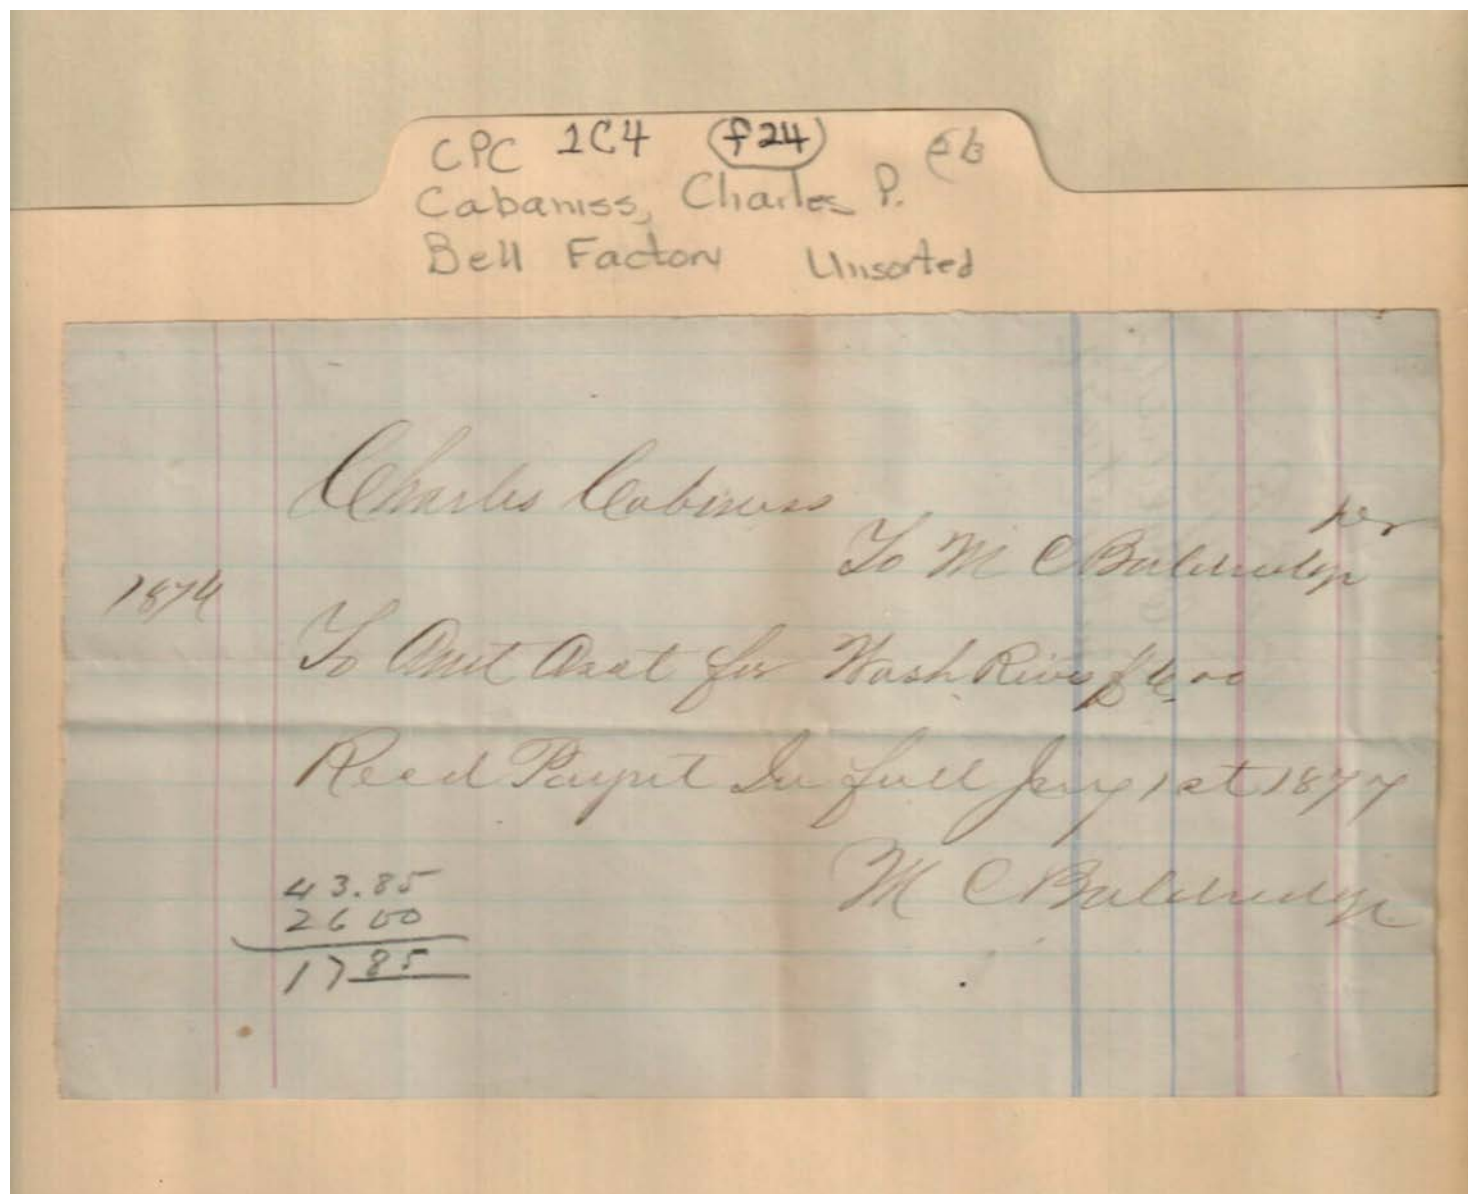 CPC 1C4 f24
Cabaniss, Charles P.
Bell Factory Unsorted
Charles Cabiness
per
To M C Baldridge
1874
To Amt Asst for Wash River $6.00
Recd Paymt In full Jany 1st 1877
M C Baldridge
43.85
26 00
17 85